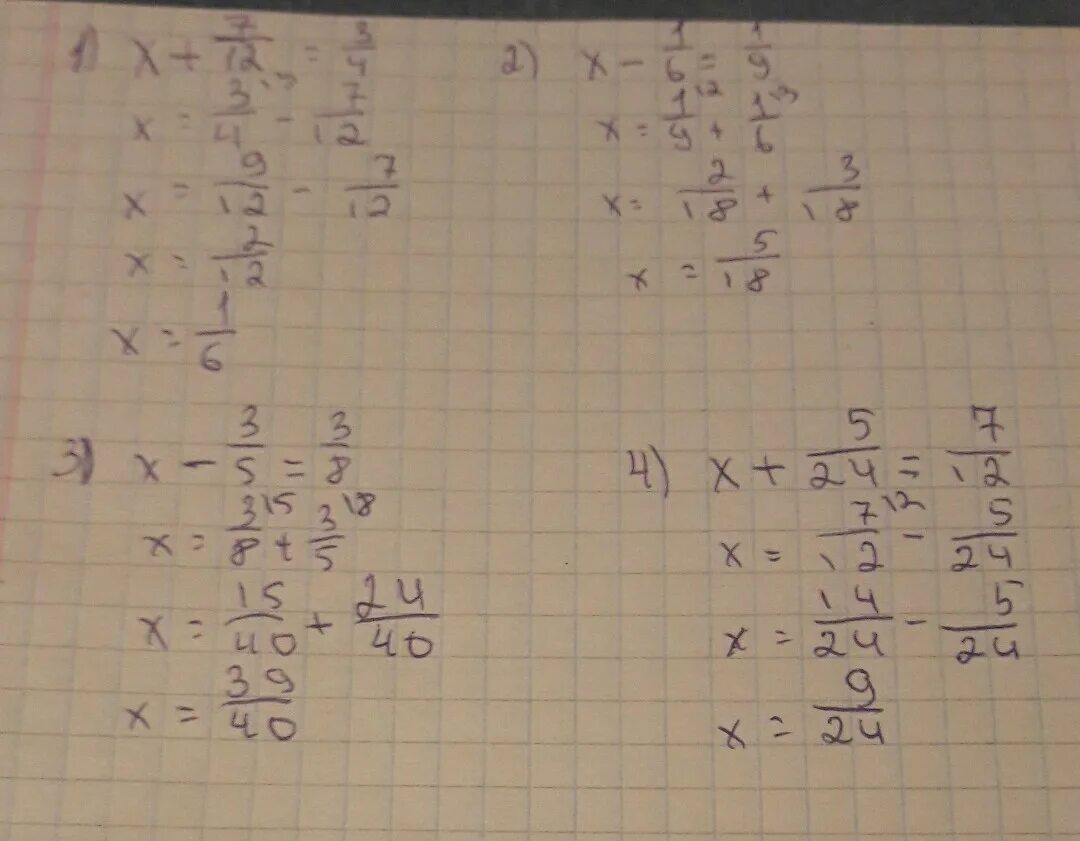 1) x + 7/12 = 3/4
x = 3/4 \3 - 7/12
x = 9/12 - 7/12
x = 2/12
x = 1/6
2) x - 1/6 = 1/9
x = 1/9 \2 + 1/6 \3
x = 2/18 + 3/18
x = 5/18
3) x - 3/5 = 3/8
x = 3/8 \5 + 3/5 \8
x = 15/40 + 24/40
x = 39/40
4) x + 5/24 = 7/12
x = 7/12 \2 - 5/24
x = 14/24 - 5/24
x = 9/24